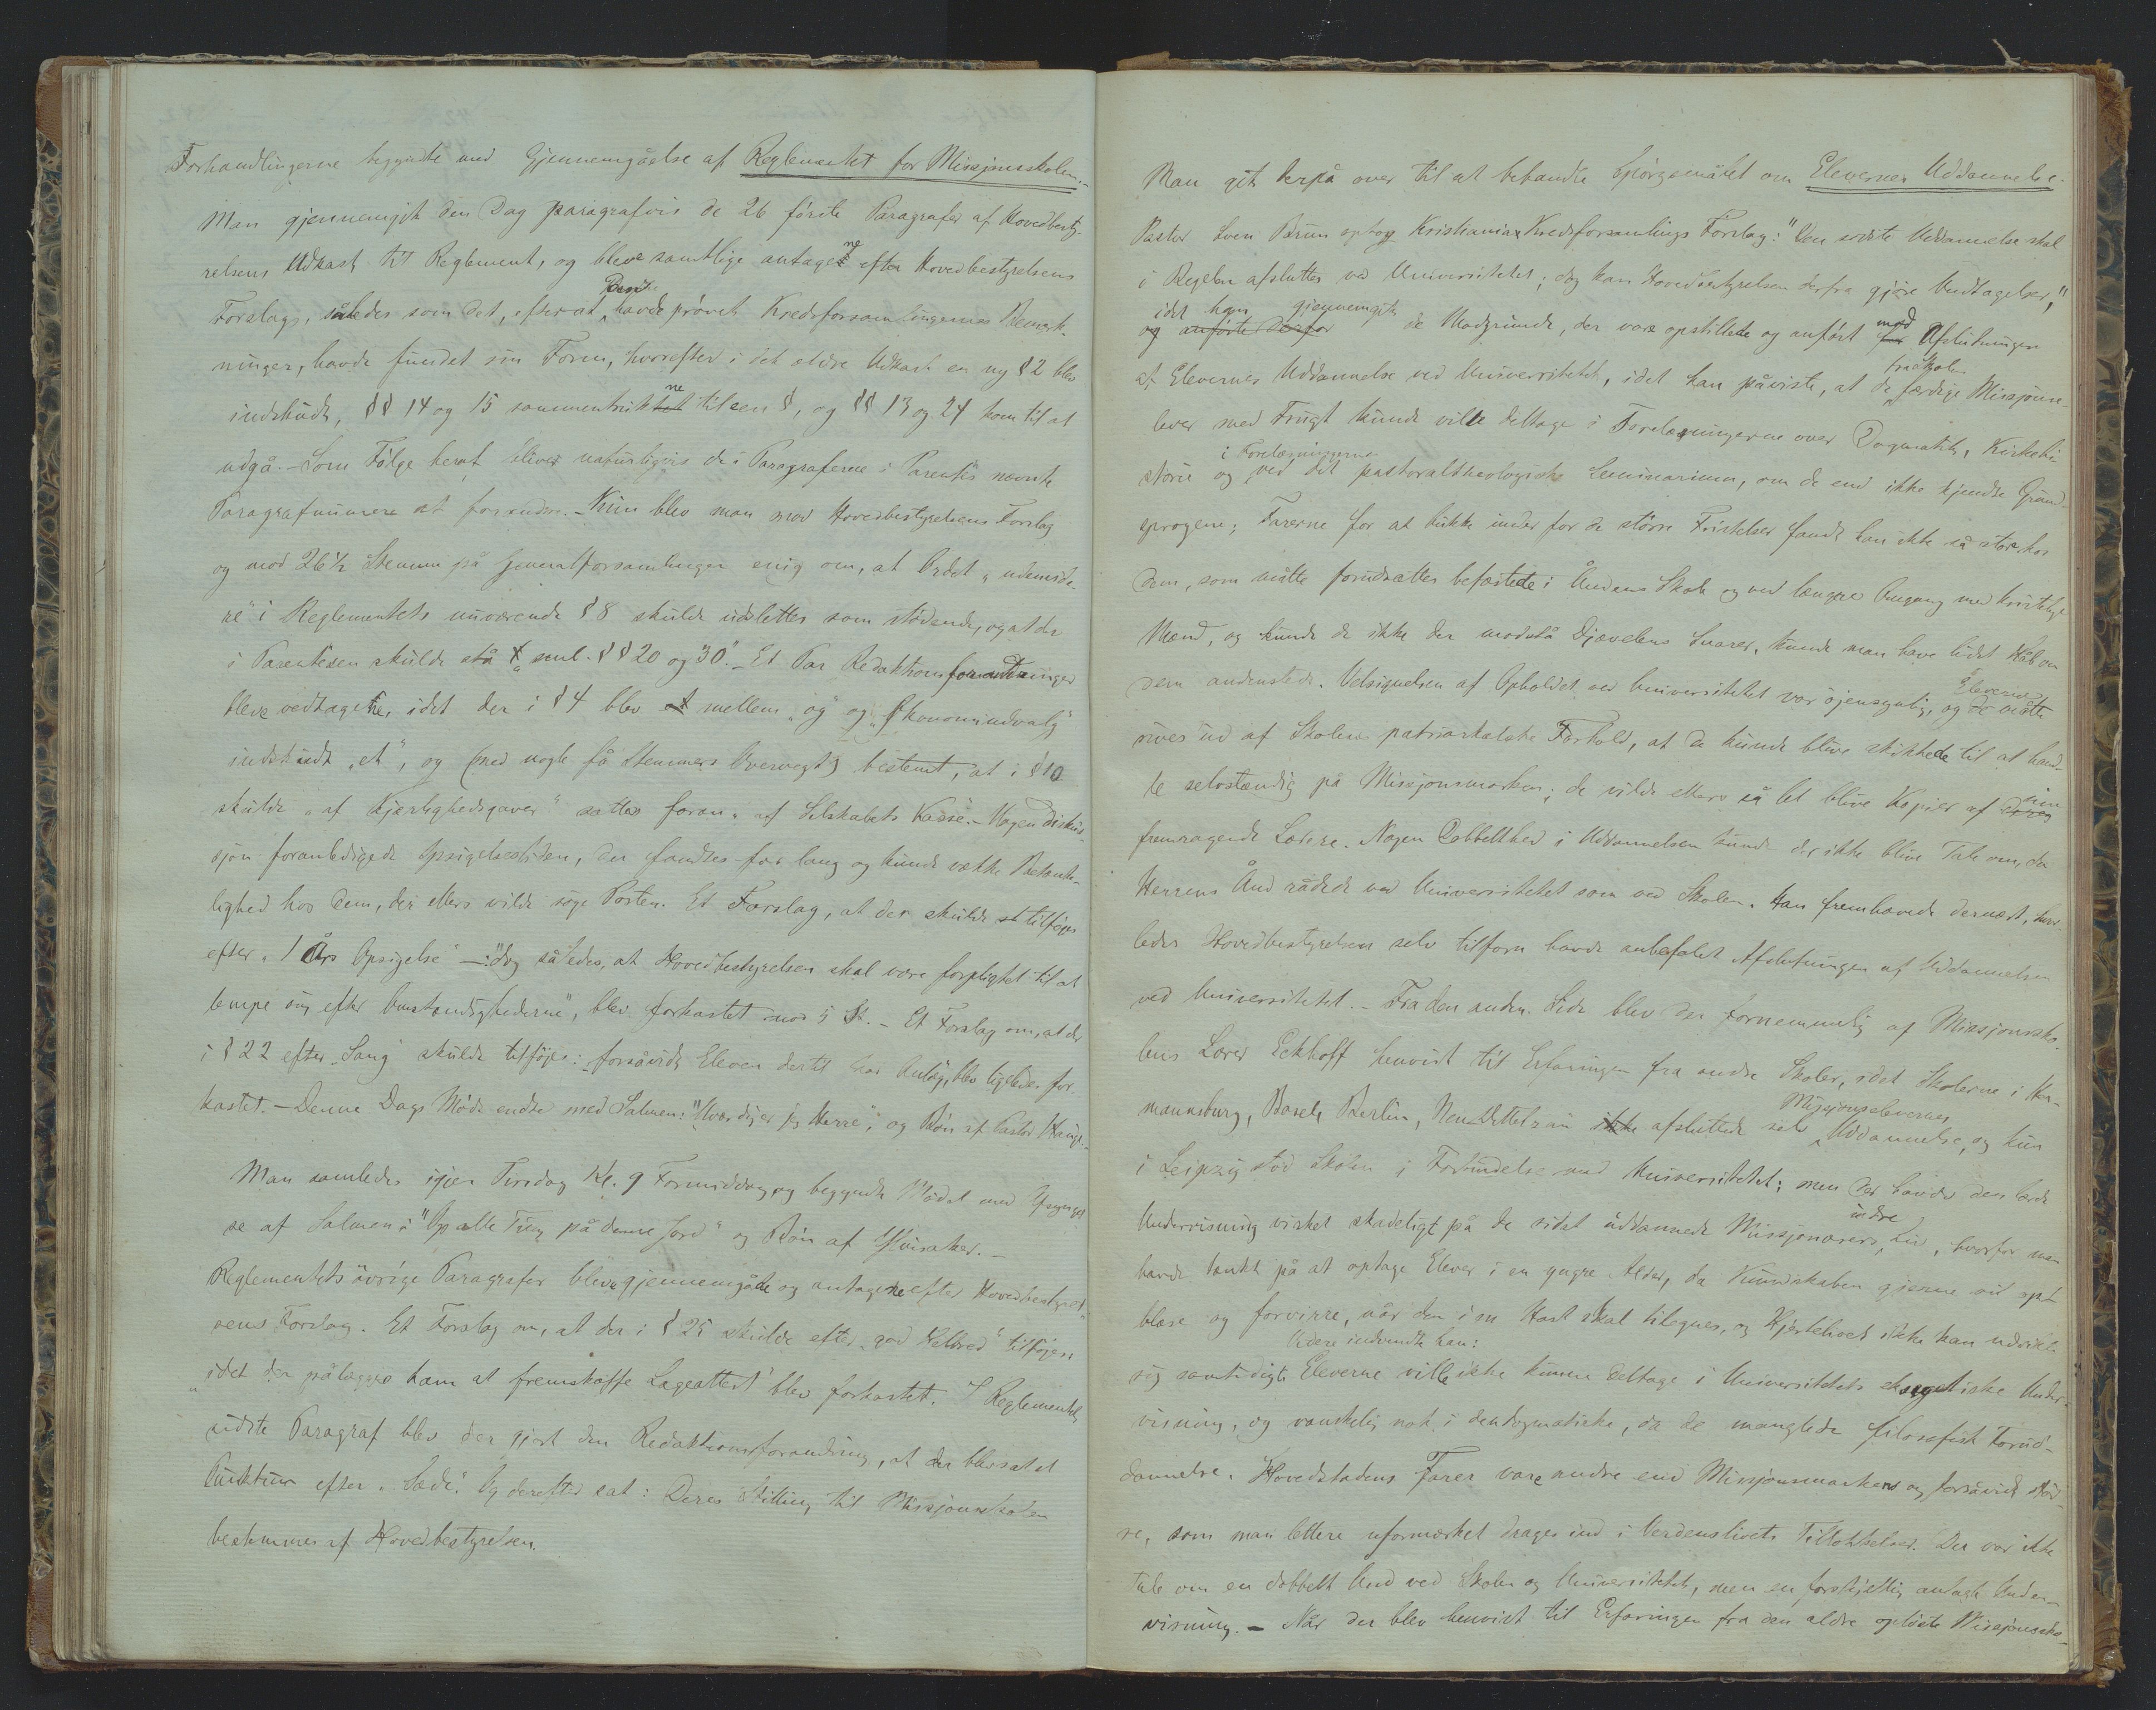 Forhandlingerne begyndte med Gjennemgåelse af Reglementet for Missjonsskolen.-
Man gjennemgik den Dag paragrafvis de 26 förste Paragrafer af Hovedbesty-
relsens Udkast til Reglement, og bleve samtlige antagene efter Hovedbestyrelsens
Forslag, således som det, efterat den havde prövet Kredsforsamlingernes Bemærk-
ninger, havde fundet sin Form, hvorefter i det ældre Udkast en ny § 2 blev
indskudt, §§ 14 og 15 sammentrukne til een §, og §§ 13 og 24 kom til at
udgå. - Som Fölge heraf bliver naturligvis de i Paragraferne i Parentes nævnte
Paragrafnumere at forandre. - Kun blev man mod Hovedbestyrelsens Forslag
og mod 26 1/2 Stemme på Generalforsamlingen enig om, at Ordet "udenide-
re" i Reglementets nuværende § 8 skulde udslettes som stödende, og at der
i Parentesen skulde stå "sml. §§ 20 og 30". - Et Par Redaktionsforandringer
bleve vedtagene, idet der i § 4 blev mellem "og" og "Ökonomiudvalg"
indskudt "et", og (med nogle få Stemmers Overvægt) bestemt, at i § 10
skulde "af Kjærlighedsgaver" sættes foran "af Selskabets Kasse". - Nogen Diskus-
sjon foranledigede Opsigelsestiden, der fandtes for lang og kunde vække Betænke-
lighed hos dem, der ellers vilde söge Posten. Et Forslag, at der skulde tilföjes
efter "1 Års Opsigelse" -: "dog således, at Hovedbestyrelsen skal være forpligtet til at
lempe sig efter Omstændighederne", blev forkastet mod 5 St. - Et Forslag om, at der
i § 22 efter "Sang" skulde tilföjes: forsåvidt Eleven dertil har Anlæg, blev ligeledes for-
kastet. - Denne Dags Möde endte med Salmen: "Uværdig er jeg Herre", og Bön af Pastor Hauge.
Man samledes igjen Tirsdag Kl. 9 Formiddag og begyndte Mödet med Afsyngel-
se af Salmen: "Op alle Ting på denne Jord" og Bön af Hvisaker. -
Reglementets övrige Paragrafer bleve gjennemgåede og antagene efter Hovedbestyrel-
sens Forslag. Et Forslag om, at der i § 25 skulde efter "god Helbred" tilföjes
"idet der pålægges ham at fremskaffe Lægeattest" blev forkastet. I Reglementets
sidste Paragraf blev der gjort den Redaktionsforandring, at der blev sat et
Punktum efter "Sæde". Og derefter sat: Deres Stilling til Missjonsskolen
bestemmes af Hovedbestyrelsen.
Man gik derpå over til at behandle Spörgsmålet om Elevernes Uddannelse.
Pastor Sven Brun optog Kristiania Kredsforsamlings Forslag: "Den sidste Uddannelse skal
i Regelen afsluttes ved Universitetet; dog kan Hovedbestyrelsen derfra gjöre Undtagelser,"
idet han gjennemgik de Modgrunde, der vare opstillede og anfört mod Afslutningen
af Elevernes Uddannelse ved Universitetet, idet han påviste, at de fra Skolen færdige Missjonse-
lever med Frugt kunde ville deltage i Forelæsningerne over Dogmatik, Kirkehi-
storie og i Forelæsningerne ved det pastoraltheologiske Seminarium, om de end ikke kjendte Grund-
sprogene; Farerne for at bukke under for de större Fristelser fandt han ikke så stor hos
dem, som måtte forudsættes befæstede i Åndens Skole og ved længre Omgang med kristelige
Mænd, og kunde de ikke der modstå Djævelens Snarer, kunde man have lidet Håb om
dem andensteds. Velsignelsen af Opholdet ved Universitetet var öjensynlig, og Eleverne måtte
rives ud af Skolens patriarkalske Forhold, at de kunde blive skikkede til at hand-
le selvstændig på Missjonsmarken; de vilde ellers så let blive Kopier af sin
fremragende Lærere. Nogen Dobbelthed i Uddannelsen kunde der ikke blive Tale om, da
Herrens Ånd rådede ved Universitetet som ved Skolen. Han fremhævede dernæst, hvor-
ledes Hovedbestyrelsen selv tilforn havde anbefalet Afslutningen af Uddannelsen
ved Universitetet. - Fra den anden Side blev der fornemmelig af Missjonssko-
lens Lærer Eckhoff henvist til Erfaringen fra andre Skoler, idet Skolerne i Her-
mannsburg, Basel, Berlin, Neu-Dettelsau afsluttede selv Missjonselevernes Uddannelse, og kun
i Leipzig stod Skolen i Forbindelse med Universitetet; men der havde den lærde
Undervisning virket skadeligt på de sidst uddannede Missjonærers indre Liv, hvorfor man
havde tænkt på at optage Elever i en yngre Alder, da Kundskaben gjerne vil op-
blæse og forvirre, når den i en Hast skal tilegnes, og Hjertelivet ikke kan udvikle
sig samtidigt. Videre indvendte han: Eleverne ville ikke kunne deltage i Universitetets eksegetiske Under-
visning, og vanskelig nok i den dogmatiske, da de manglede filosofisk Forud-
dannelse. Hovedstadens Farer vare andre end Missjonsmarkens og forsåvidt stör-
re, som man lettere uformærket drages ind i Verdenslivets Tillokkelser. Der var ikke
tale om en dobbelt Ånd ved Skolen og Universitetet, men en forskjellig anlagt Under-
visning. - Når der blev henvist til Erfaringen fra den ældre oplöste Missjonssko-